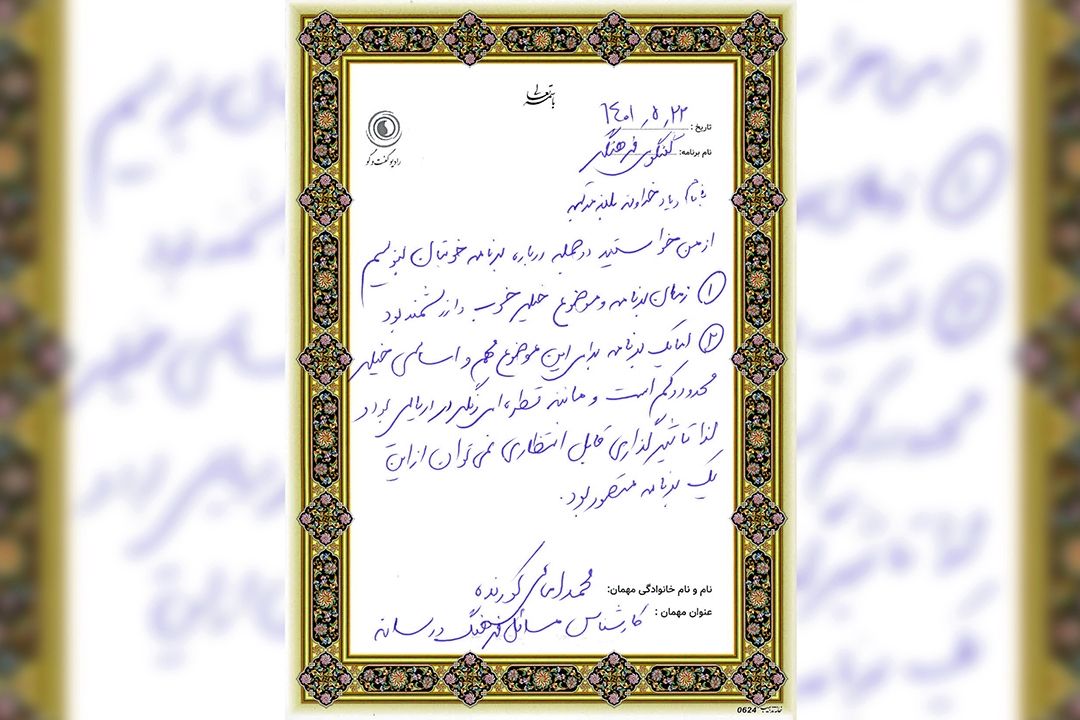 باسمه تعالی
رادیو گفت و گو
تاریخ : ۱۴۰۱,۵,۲۲
نام برنامه: گفتگوی فرهنگی
بنام و یاد خداوند بلند مرتبه
از من خواستید در جمله درباره برنامه خوبتان بنویسم
① زمان برنامه و موضوع خیلی خوب و ارزشمند بود
② لکن یک برنامه برای این موضوع مهم و اساسی خیلی
محدود و کم است و مانند قطره‌ای زنگی در دریایی بود
لذا تاثیرگذاری قابل انتظاری نمی‌توان از این
یک برنامه متصور بود.
نام و نام خانوادگی مهمان: محمد
عنوان مهمان : کارشناس مسائل فرهنگ و رسانه
0624